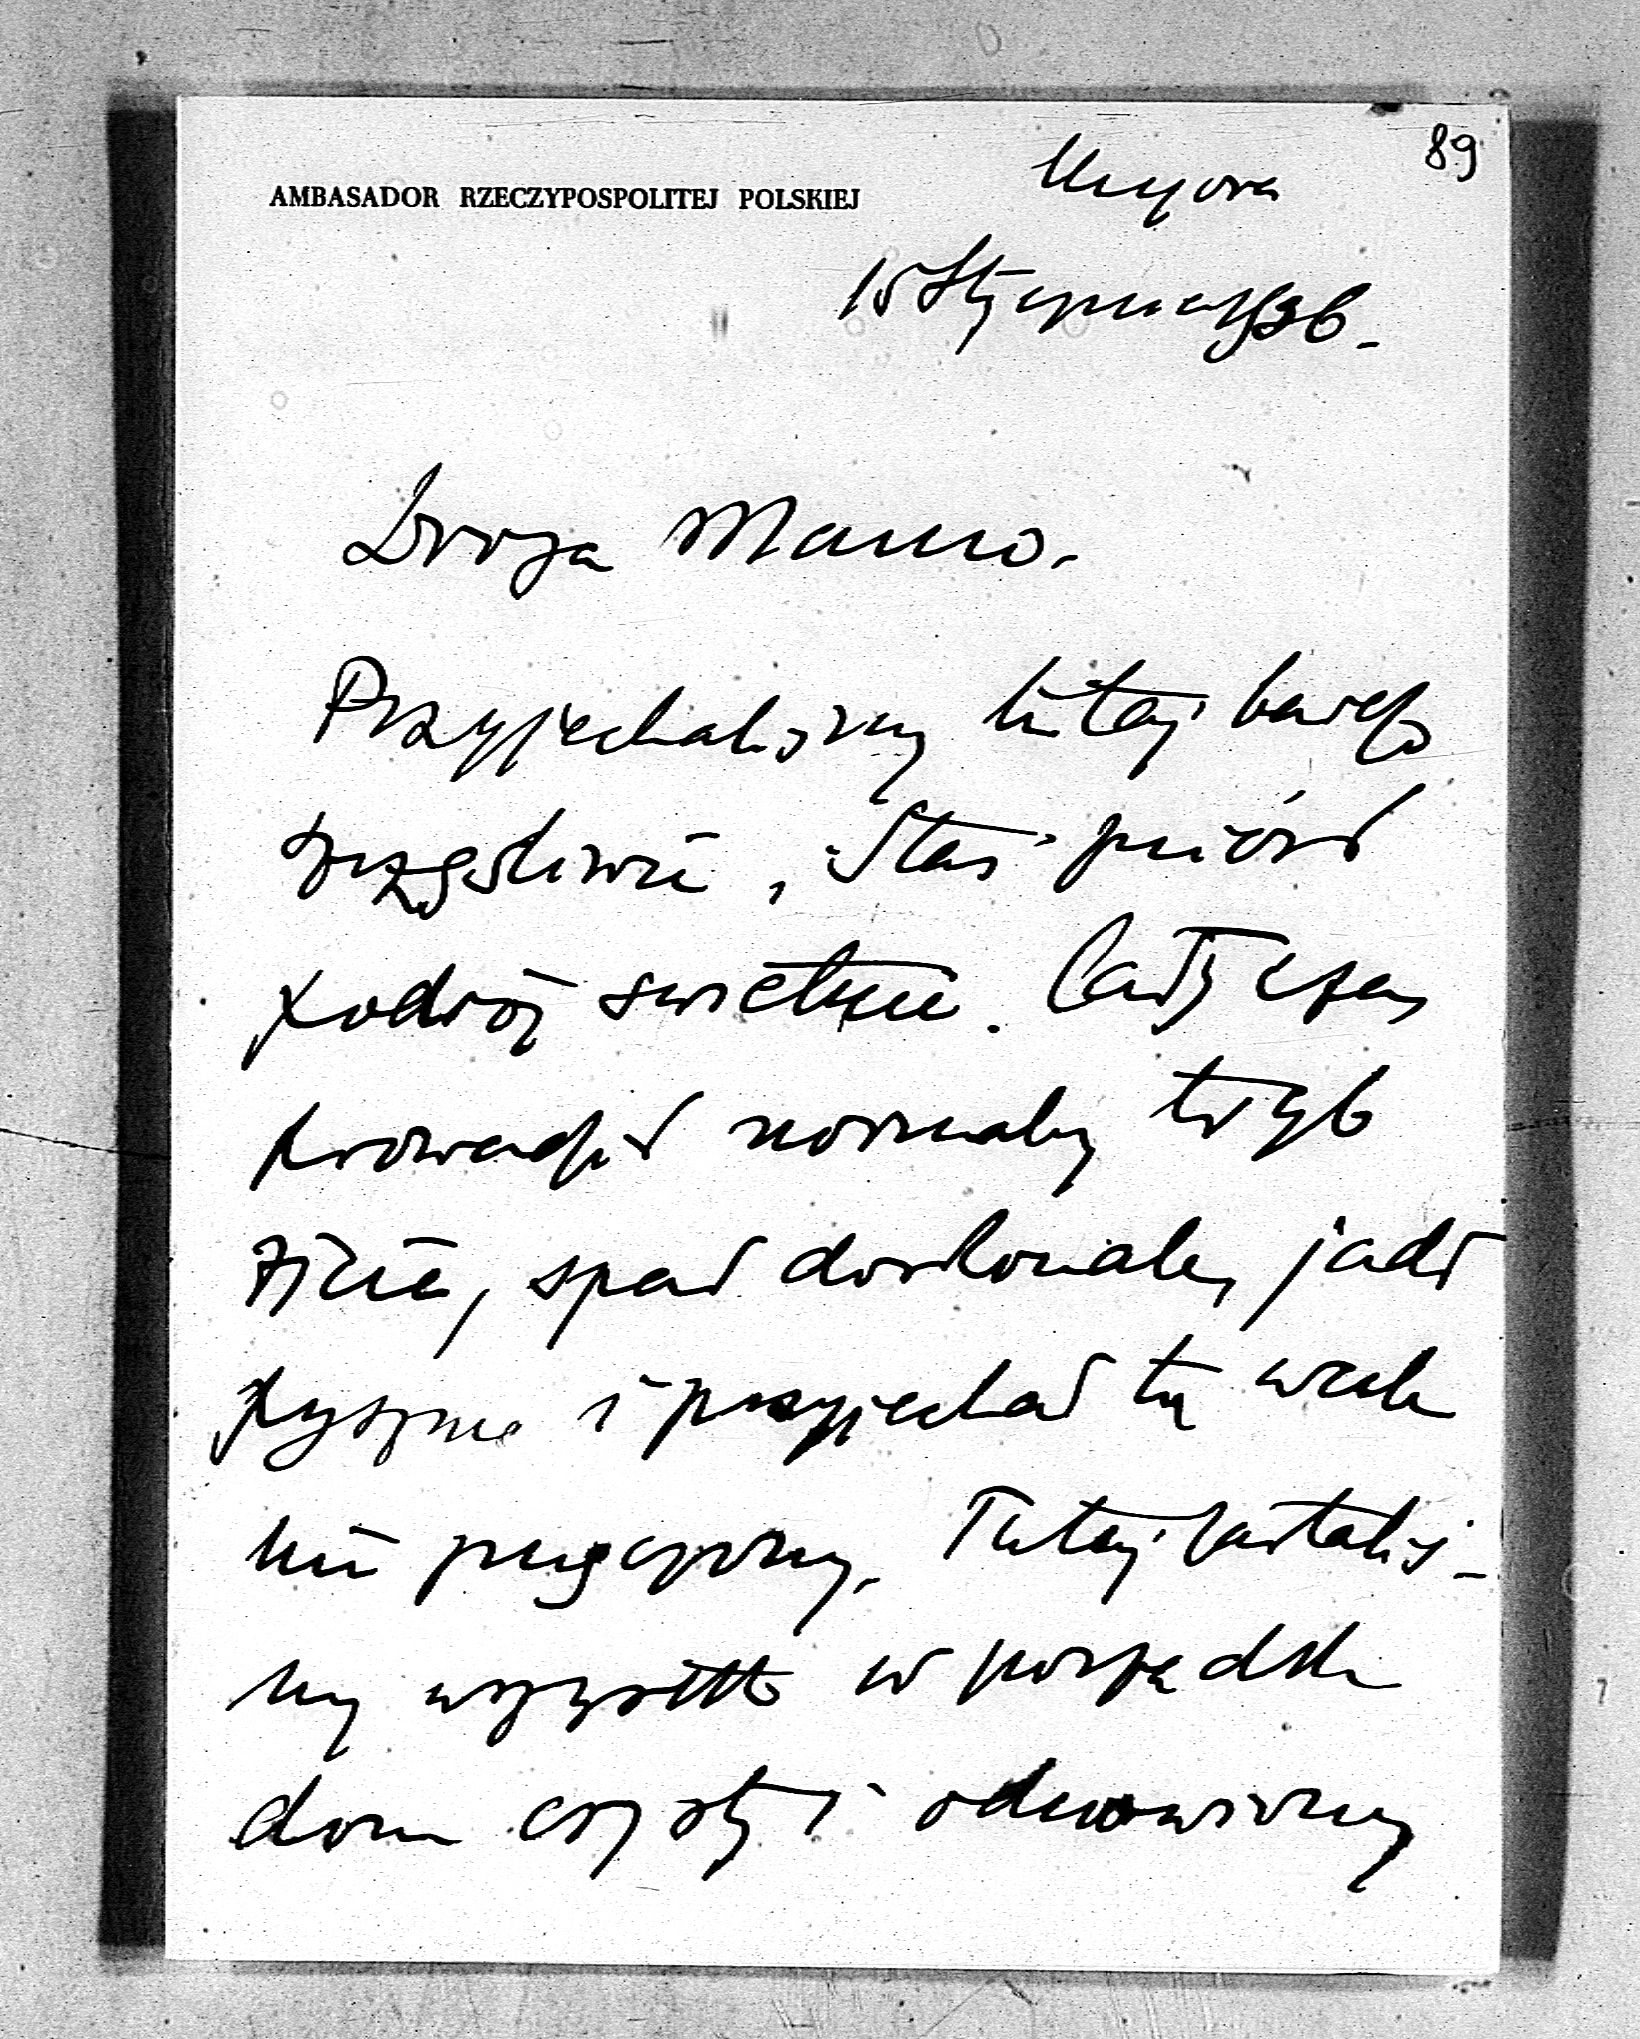 89
AMBASADOR RZECZYPOSPOLITEJ POLSKIEJ
15 Stycznia 1936 -
Droga Mamo.
Przyjechaliśmy tutaj bardzo
szczęśliwie, Staś zniósł
podróż świetnie. Cały czas
prowadził normalny tryb
życia, spał doskonale, jadł
pysznie i przyjechał tu wcale
nie zmęczony. Tutaj zastaliś-
my wszystko w porządku
dom czysty i odnowiony